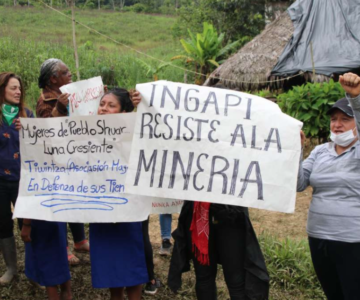 Mujeres de Pueblo Shuar
Luna Cresiente
Tiwintza Asociasión Muj
En Defenza de sus Tien
INGAPI
RESISTE A LA
MINERIA